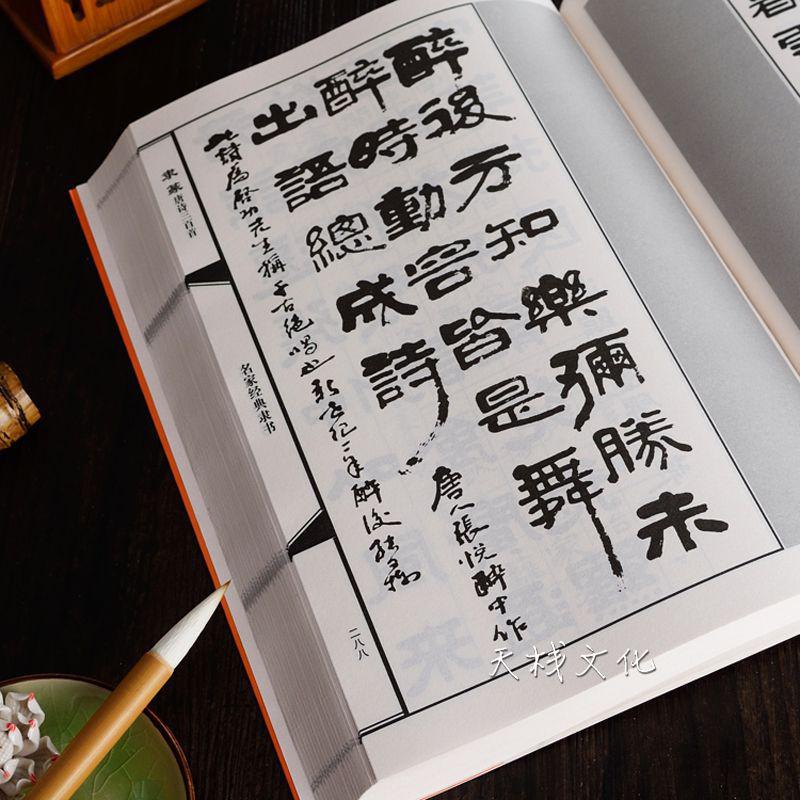 醉後方知樂彌勝未
醉時動容皆是舞
出語總成詩
唐人張悦醉中作
此詩爲啓功先生稱千古絕唱也 新世纪二年醉後
隶篆唐诗三百首
名家经典隶书
二八八
天栈文化